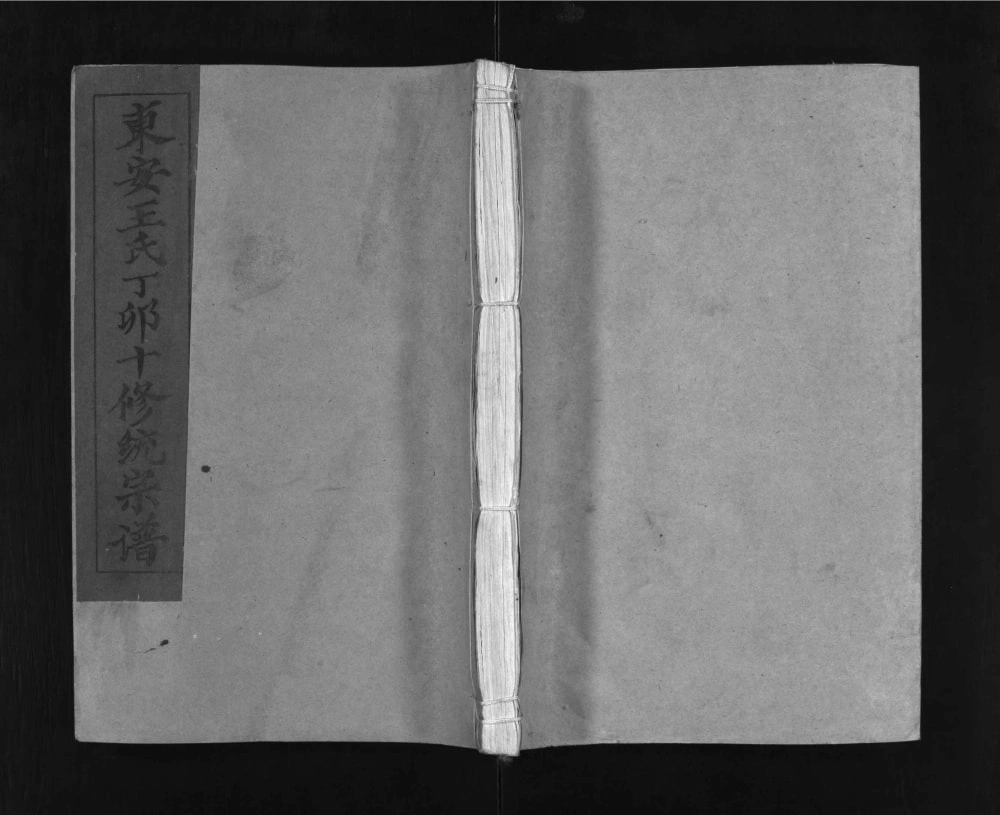 東安王氏丁卯十修统宗谱